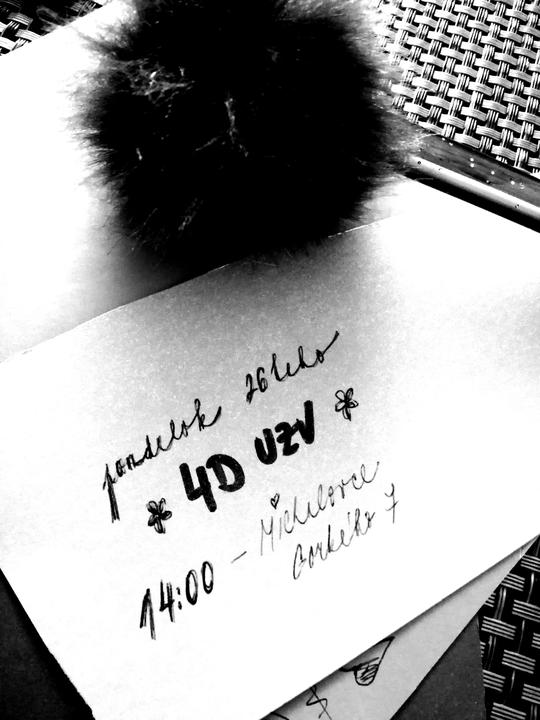 pondelok 26teho
4D UZV
14:00 - Michalovce
Gorkého 7